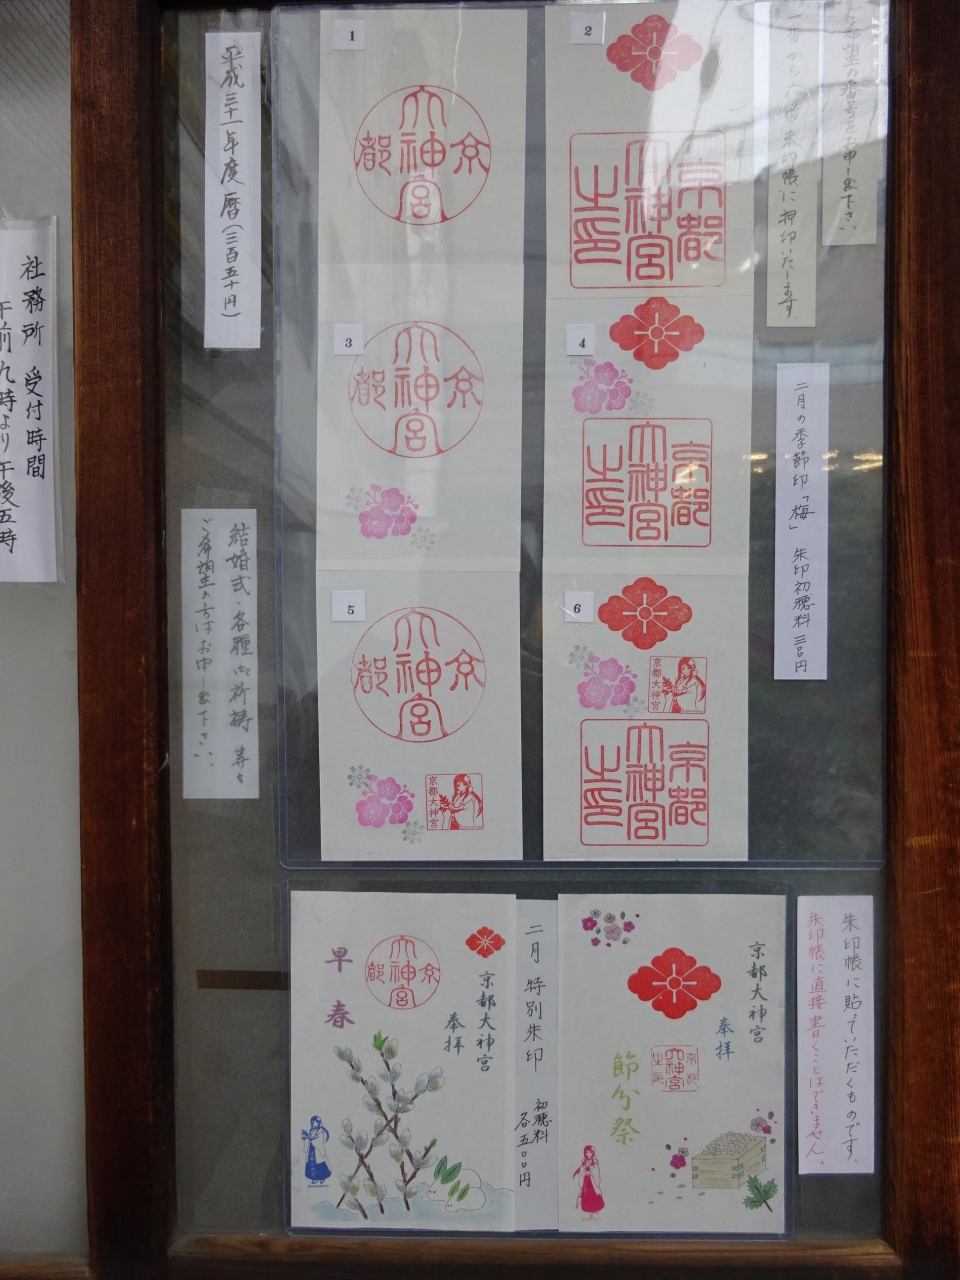 ご希望の番号をお申し出下さい
一番から六番朱印帳に押印いたします
1
京都大神宮
2
京都大神宮之印
3
京都大神宮
4
京都大神宮之印
5
京都大神宮
京都大神宮
6
京都大神宮
京都大神宮之印
二月の季節印「梅」 朱印初穂料 三〇〇円
平成三十一年度暦(三百五十円)
結婚式・各種御祈祷 等々
ご希望の方はお申し出下さい。
社務所 受付時間
午前九時より午後五時
朱印帳に貼っていただくものです。
朱印帳に直接書くことはできません。
京都大神宮
奉拝
京都大神宮之印
節分祭
二月 特別朱印 初穂料
各五〇〇円
京都大神宮
奉拝
京都大神宮
早春